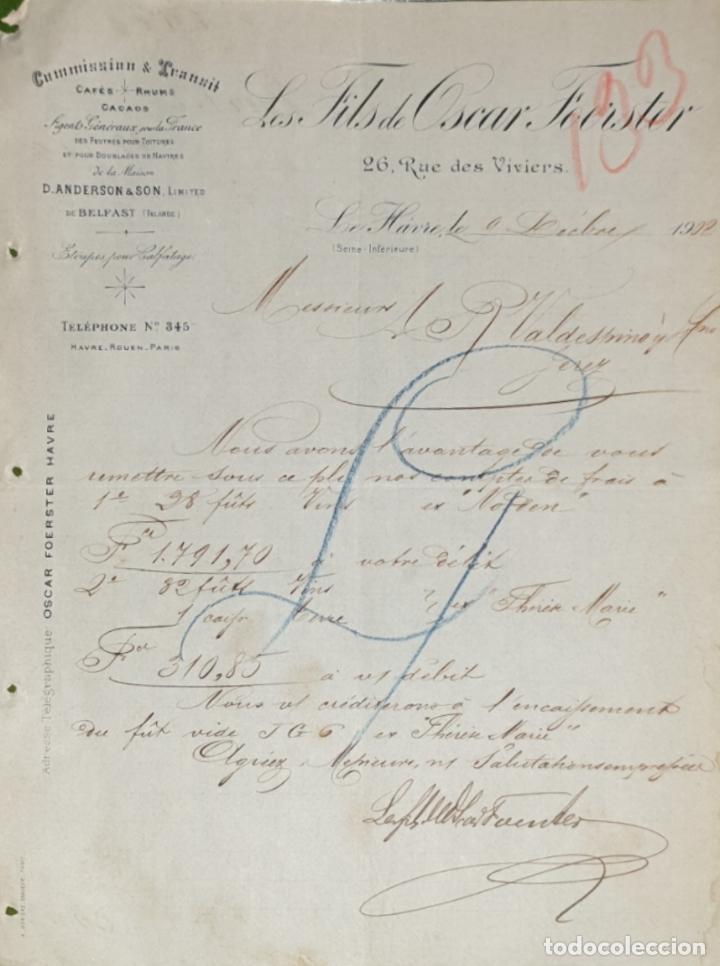 Commission & Transit
CAFÉS - RHUMS
CACAOS
Agents Généraux pour la France
DES FEUTRES POUR TOITURES
ET POUR DOUBLAGES DE NAVIRES
de la Maison
D. ANDERSON & SON, LIMITED
DE BELFAST (IRLANDE)
Etoupes pour Calfatage
TELÉPHONE Nº 345
HAVRE, ROUEN, PARIS
Les Fils de Oscar Foerster
183
26, Rue des Viviers.
Le Hâvre, le 9 Décbre 1902
(Seine-Inférieure)
Messieurs A R Valdespino y Hno
Jerez
Nous avons l'avantage de vous
remettre sous ce pli nos comptes de frais à
1º 28 fûts Vins ex "Norden"
Fcs 1.791,70 à votre débit
2º 82 fûts Vins ex "Thérèse Marie"
1 caisse
Fcs 310,85 à vt débit
Nous vs créditerons à l'encaissement
du fût vide J G 6 ex "Thérèse Marie"
Agréez, Messieurs, ns Salutations empressées
Les fils de Oscar Foerster
Adresse Télégraphique OSCAR FOERSTER HAVRE
todocoleccion